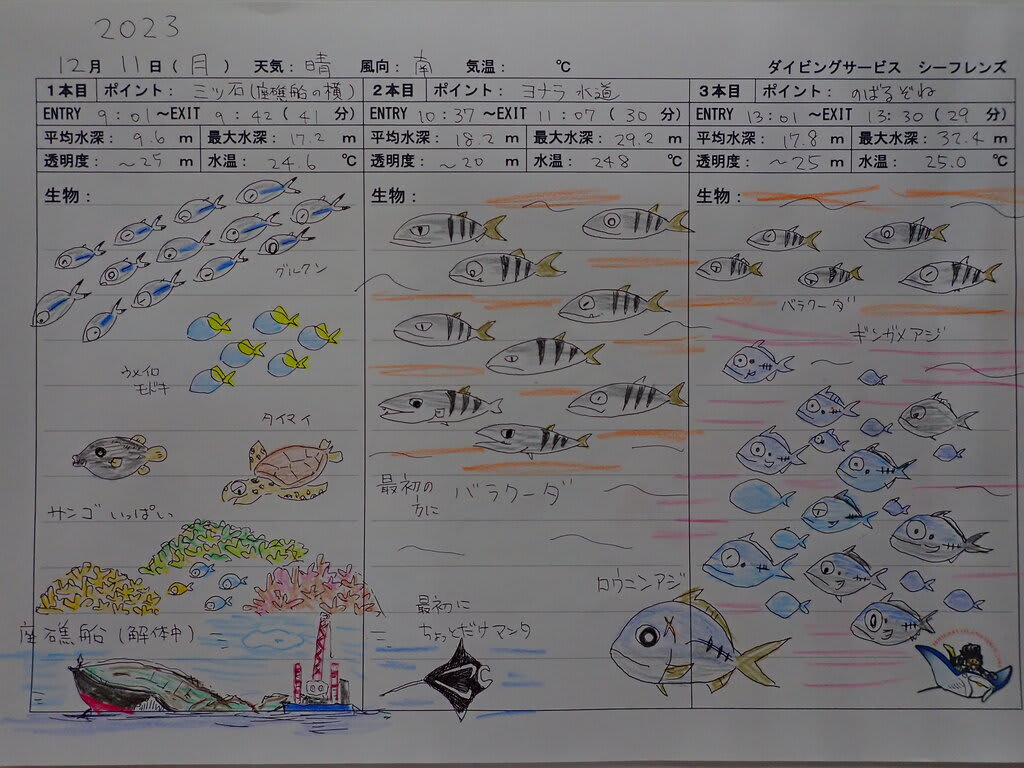 2023
12月 11日(月) 天気：晴 風向：南 気温： ℃ ダイビングサービス シーフレンズ
1本目 ポイント： 三ッ石(座礁船の横)
ENTRY 9:01～EXIT 9:42(41分)
平均水深： 9.6 m 最大水深： 17.2 m
透明度： ～25 m 水温： 24.6 ℃
生物：
グルクン
ウメイロ
モドキ
タイマイ
サンゴいっぱい
座礁船(解体中)
2本目 ポイント： ヨナラ水道
ENTRY 10:37～EXIT 11:07(30分)
平均水深： 18.2 m 最大水深： 29.2 m
透明度： ～20 m 水温： 24.8 ℃
生物：
最初の
方に
バラクーダ
最初に
ちょっとだけマンタ
ロウニンアジ
3本目 ポイント： のばるぞね
ENTRY 13:01～EXIT 13:30(29分)
平均水深： 17.8 m 最大水深： 32.4 m
透明度： ～25 m 水温： 25.0 ℃
生物：
バラクーダ
ギンガメアジ